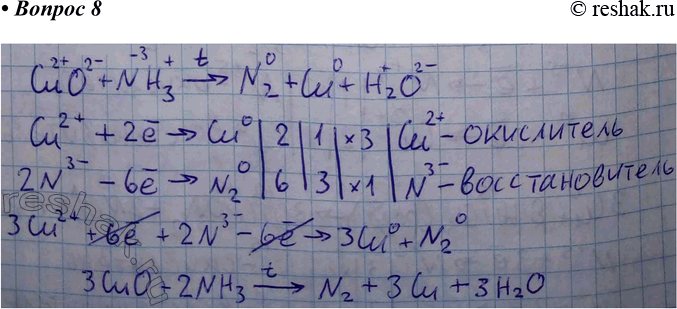 • Вопрос 8
© reshak.ru
Cu²⁺O²⁻ + N⁻³H₃⁺ →ᵗ N₂⁰ + Cu⁰ + H₂⁺O²⁻
Cu²⁺ + 2ē → Cu⁰ | 2 | 1 | ×3 | Cu²⁺ – окислитель
2N³⁻ – 6ē → N₂⁰ | 6 | 3 | ×1 | N³⁻ – восстановитель
3Cu²⁺ + 6ē + 2N³⁻ – 6ē → 3Cu⁰ + N₂⁰
3CuO – 2NH₃ →ᵗ N₂ + 3Cu + 3H₂O
reshak.ru